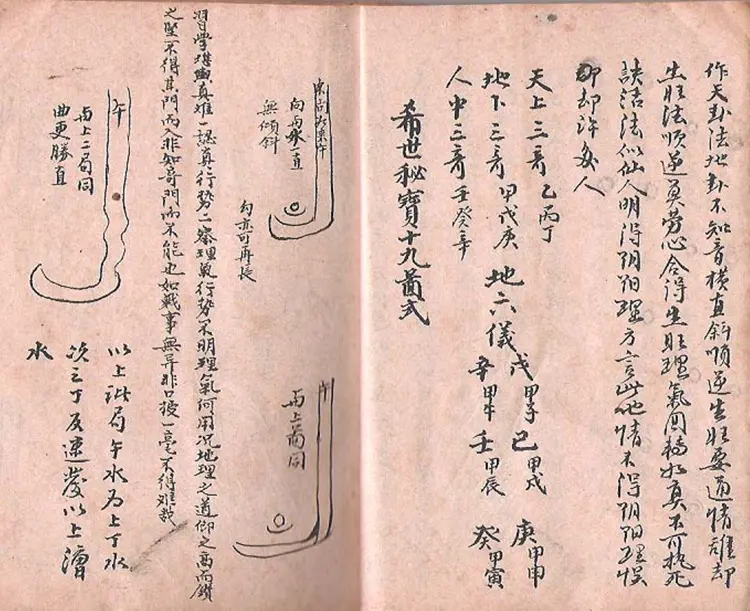 作天卦法地卦不知音橫直斜順逆生旺要通情誰却
生旺法順逆莫勞心合得生旺理氣囘轉水真不可執死
訣活法似仙人明得阴阳理方言此地情不得阴阳理悞
却許多人
天上三奇乙丙丁
地下三奇甲戊庚
人中三奇壬癸辛
地六儀
戊甲子己甲戌庚甲申
辛甲午壬甲辰癸甲寅
希世秘寶十九啚式
午
向南水一直
無傾斜
勾亦可再長
午
與上啚同
習學堪輿真难一認真行势二察理氣行势不明理氣何用况地理之道仰之高而鑚
之堅不得其門而入非知奇門而不能也如戰事無异非口授一毫不得难哉
午
與上二局同
曲更勝直
以上批局午水為上丁水
次之丁及速發以上濳
水